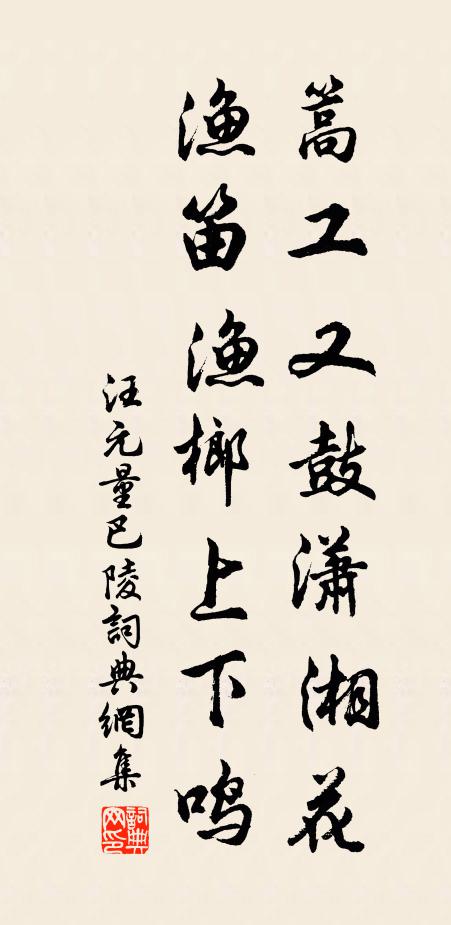 蒿工又鼓潇湘花
渔笛渔榔上下鸣
汪元量巴陵詞典網集
詞典
网印